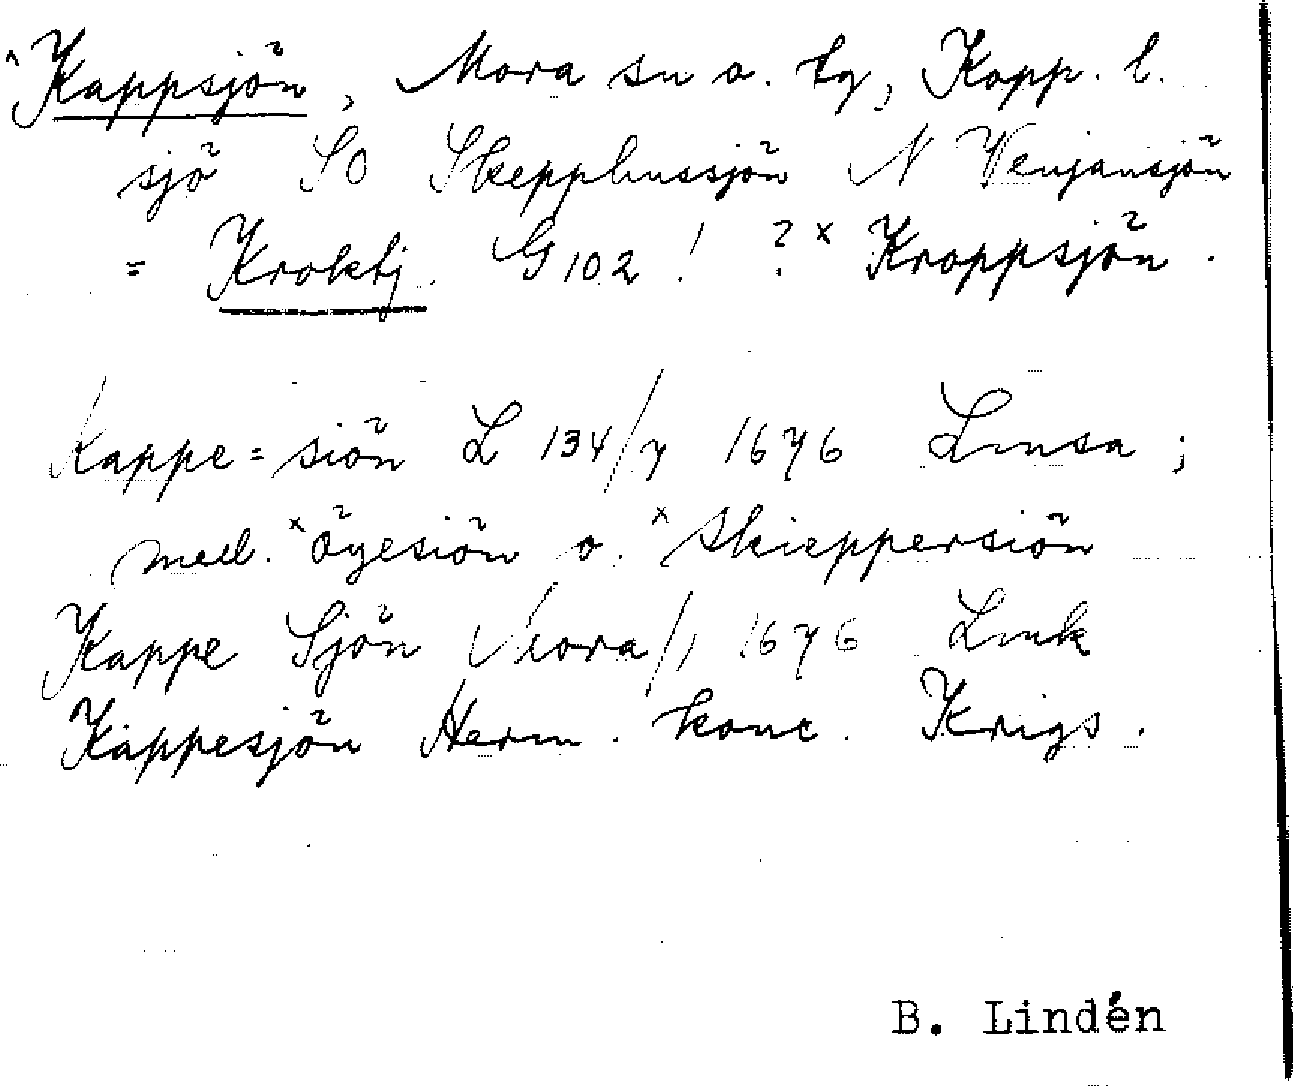 ˣKappsjön, Mora sn o. tg, Kopp. l.
sjö SO Skepphussjön N Venjansjön
= Kroktj. G 102 ! ? ˣKroppsjön.
Kappe=siön L 134/7 1676 Lmsa ;
mell. ˣöyesiön o. ˣSkieppersiön
Kappe Sjön Mora/1, 1676 Lmk
Kappesjön Herm. konc. Krigs.
B. Lindén